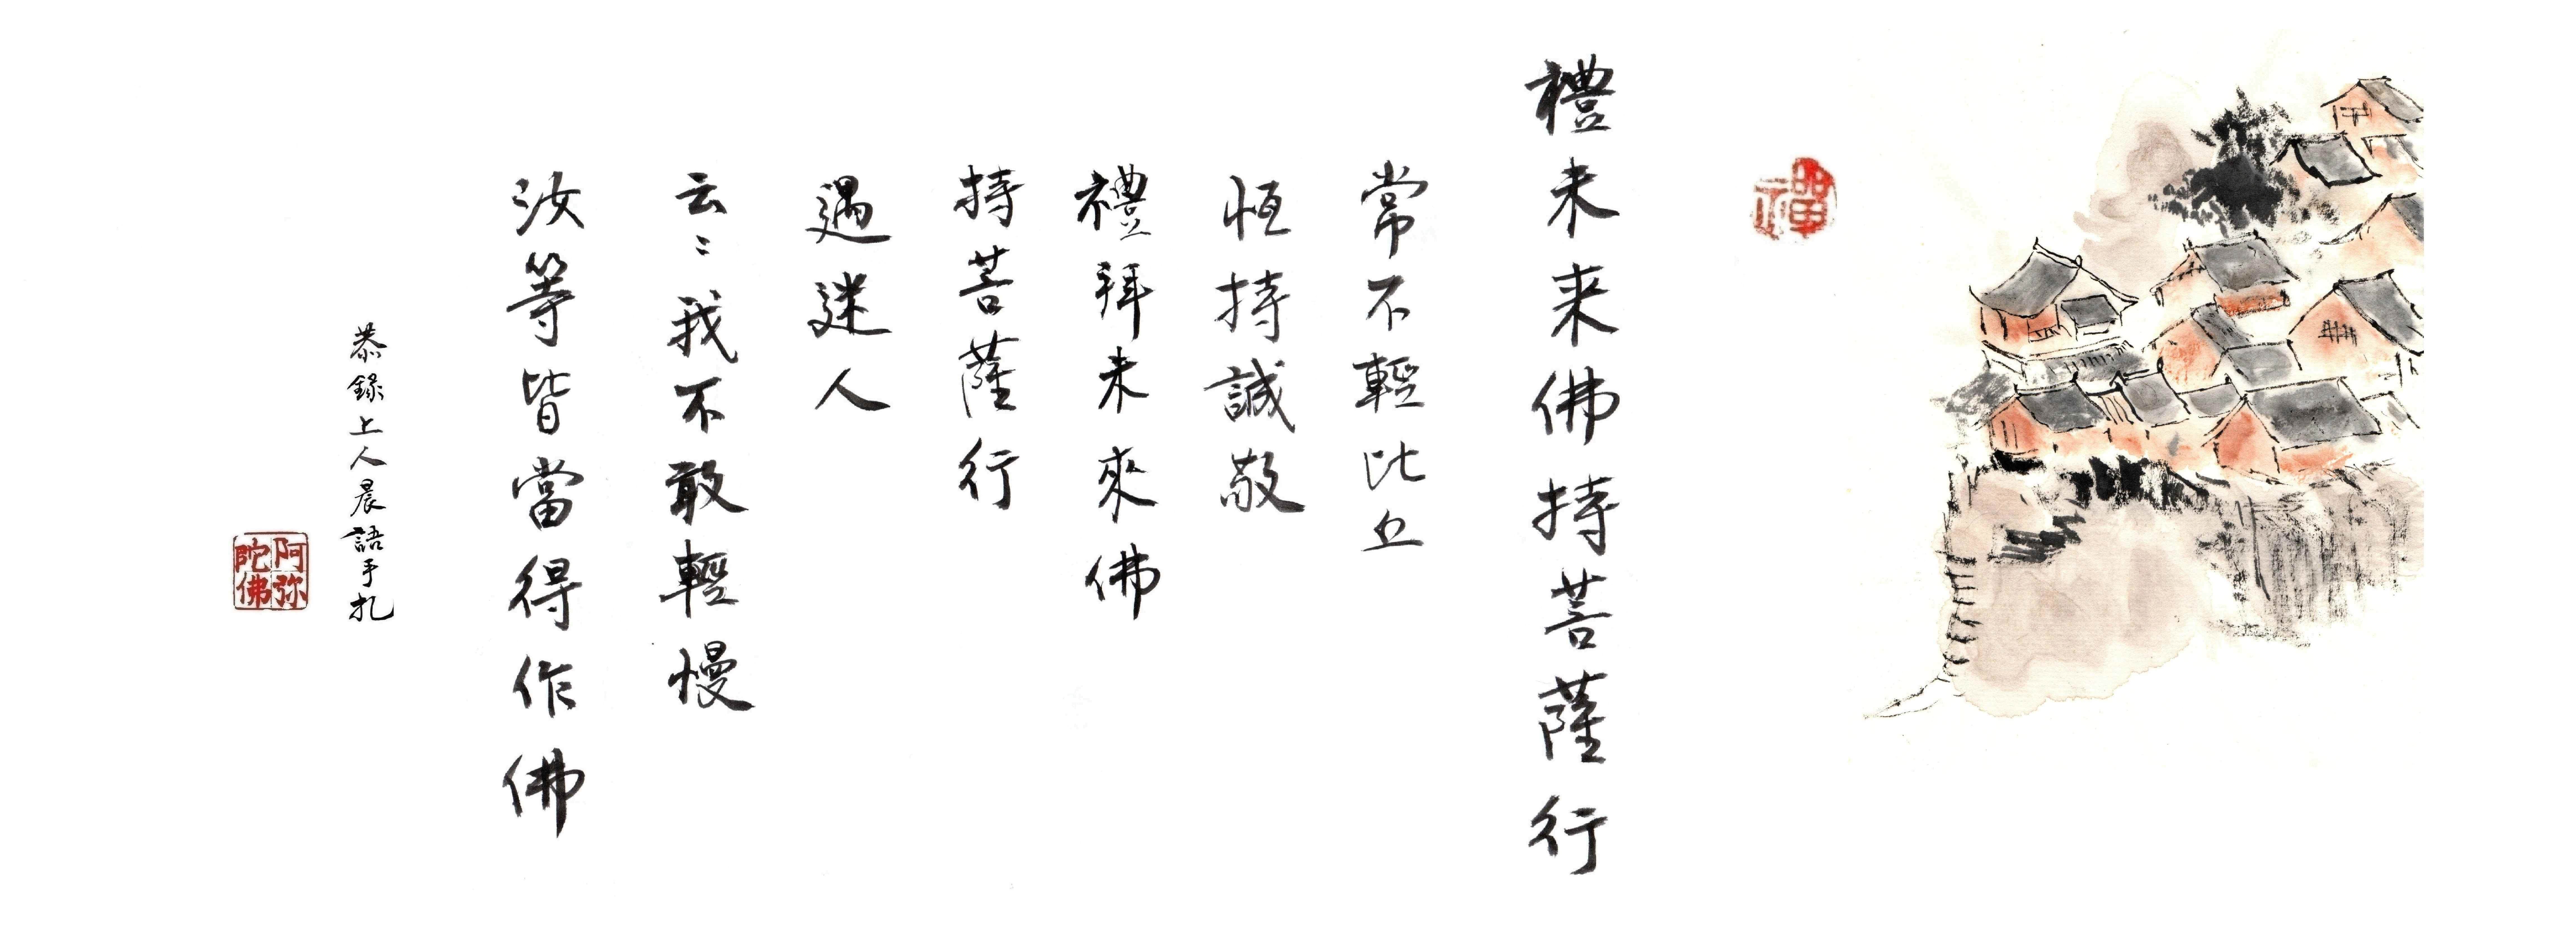 禪
禮未来佛持菩薩行
常不輕比丘
恆持誠敬
禮拜未來佛
持菩薩行
遇迷人
云〻我不敢輕慢
汝等皆當得作佛
恭錄上人晨語手扎
阿弥陀佛